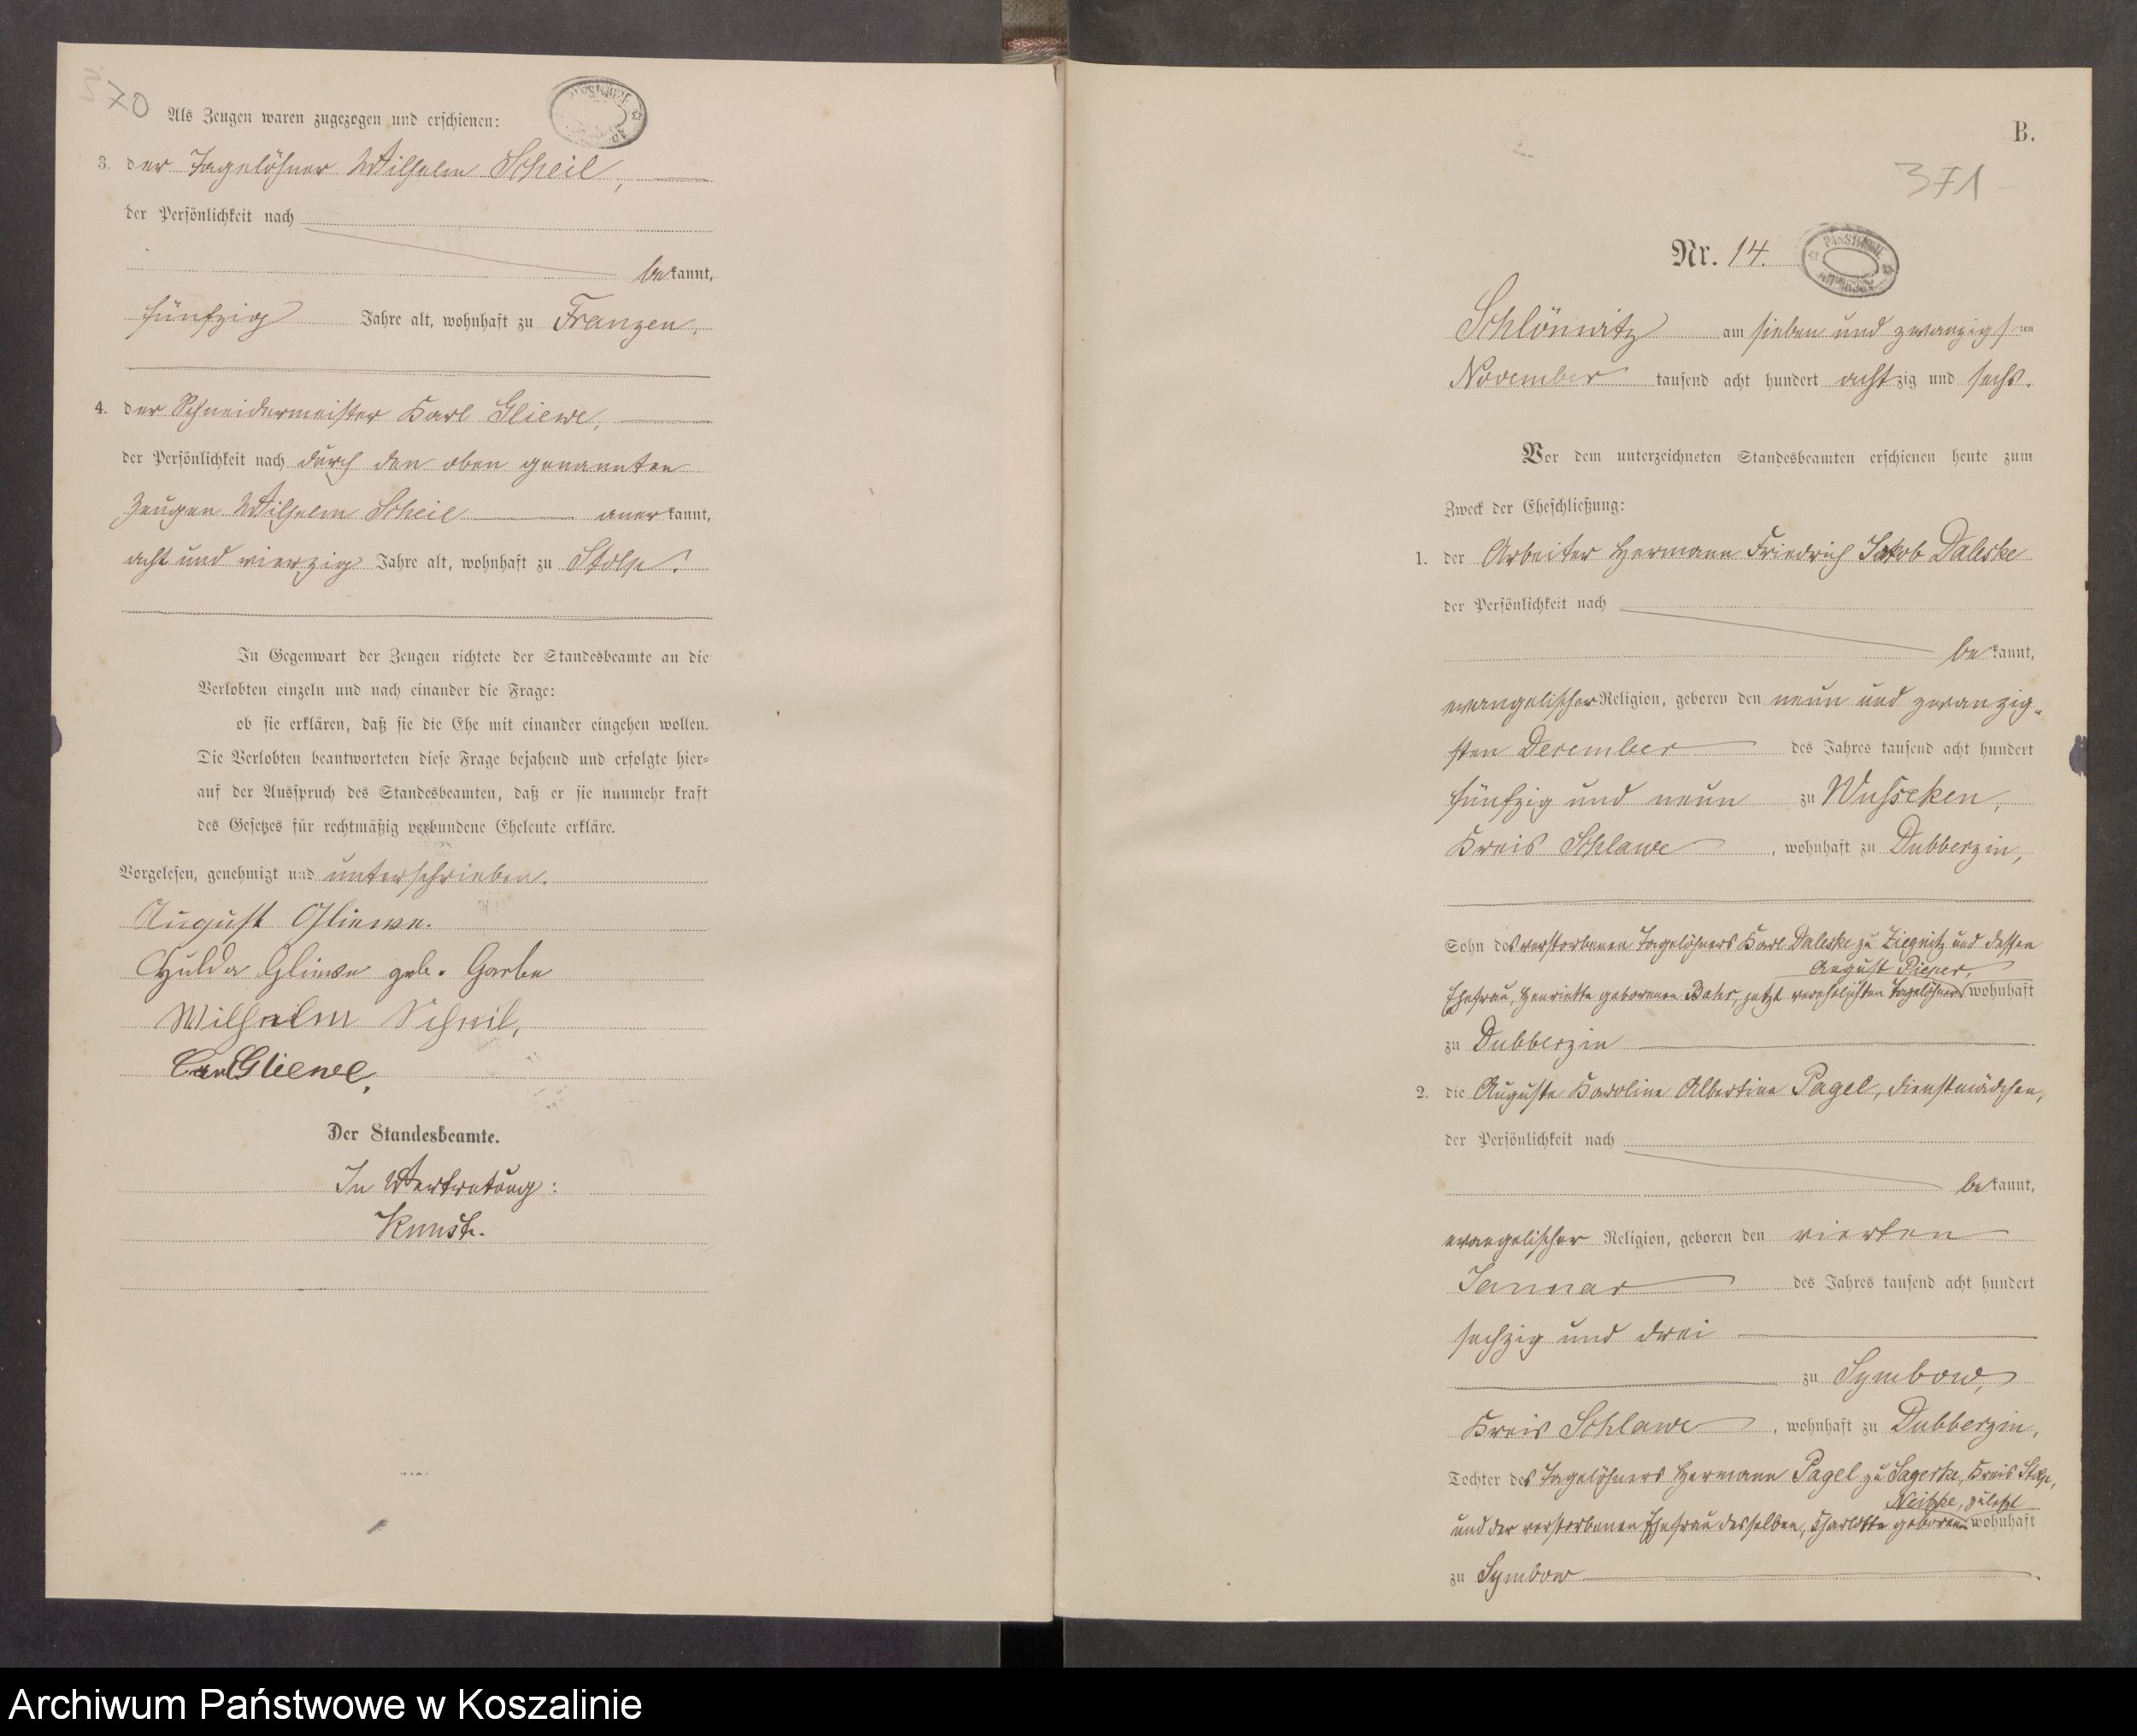 370
Als Zeugen waren zugezogen und erschienen:
3. der Tagelöhner Wilhelm Scheil,
der Persönlichkeit nach
bekannt,
fünfzig Jahre alt, wohnhaft zu Franzen,
4. der Schneidermeister Karl Gliewe,
der Persönlichkeit nach durch den oben genannten
Zeugen Wilhelm Scheil anerkannt,
acht und vierzig Jahre alt, wohnhaft zu Stolp.
In Gegenwart der Zeugen richtete der Standesbeamte an die
Verlobten einzeln und nach einander die Frage:
ob sie erklären, daß sie die Ehe mit einander eingehen wollen.
Die Verlobten beantworteten diese Frage bejahend und erfolgte hier-
auf der Ausspruch des Standesbeamten, daß er sie nunmehr kraft
des Gesetzes für rechtmäßig verbundene Eheleute erkläre.
Vorgelesen, genehmigt und unterschrieben.
August Gliewe.
Hulda Gliewe geb. Garbe
Wilhelm Scheil,
Carl Gliewe,
Der Standesbeamte.
In Vertretung:
B.
371
Nr. 14.
Schlönwitz am sieben und zwanzigsten
November tausend acht hundert achtzig und sechs.
Vor dem unterzeichneten Standesbeamten erschienen heute zum
Zweck der Eheschließung:
1. der Arbeiter Hermann Friedrich Jakob Daleske
der Persönlichkeit nach
bekannt,
evangelischer Religion, geboren den neun und zwanzig-
sten Dezember des Jahres tausend acht hundert
fünfzig und neun zu Wusseken,
Kreis Schlawe, wohnhaft zu Dubberzin,
Sohn des verstorbenen Tagelöhners Karl Daleske zu Ziegnitz und dessen
August Pieper,
Ehefrau, Henriette geborenen, jetzt verehelichten Tagelöhner wohnhaft
zu Dubberzin
2. die Auguste Karoline Albertine Pagel, Dienstmädchen,
der Persönlichkeit nach
bekannt,
evangelischer Religion, geboren den vierten
Januar des Jahres tausend acht hundert
sechzig und drei
zu Symbow,
Kreis Schlawe, wohnhaft zu Dubberzin,
Tochter des Tagelöhners Hermann Pagel zu Sagerke, Kreis Stolp,
Neitzke, zuletzt
und der verstorbenen Ehefrau desselben, Charlotte geborene wohnhaft
zu Symbow
Archiwum Państwowe w Koszalinie